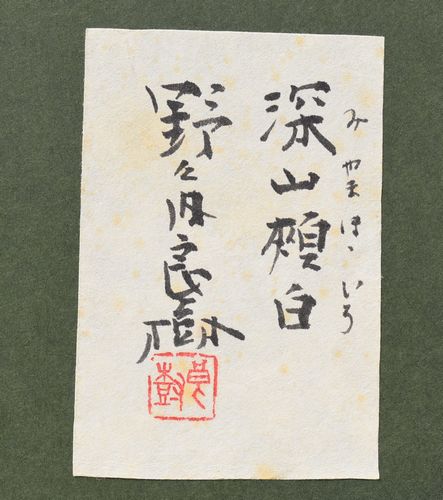 みやまほゝいろ
深山頬白
野々内良樹
良樹